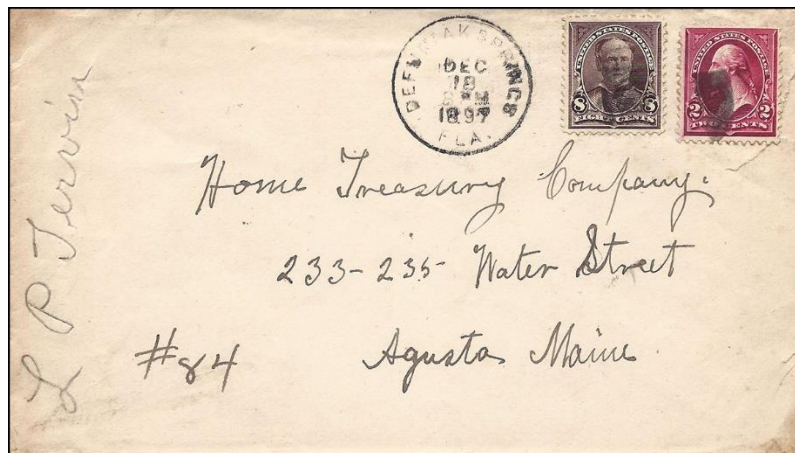 DEFUNIAK SPRINGS
DEC
18
PM
1897
FLA.
UNITED STATES POSTAGE
8 8
EIGHT CENTS
UNITED STATES POSTAGE
2 2
TWO CENTS
Home Treasury Company.
233-235 Water Street
Agusta Maine
#84
L P Tervin